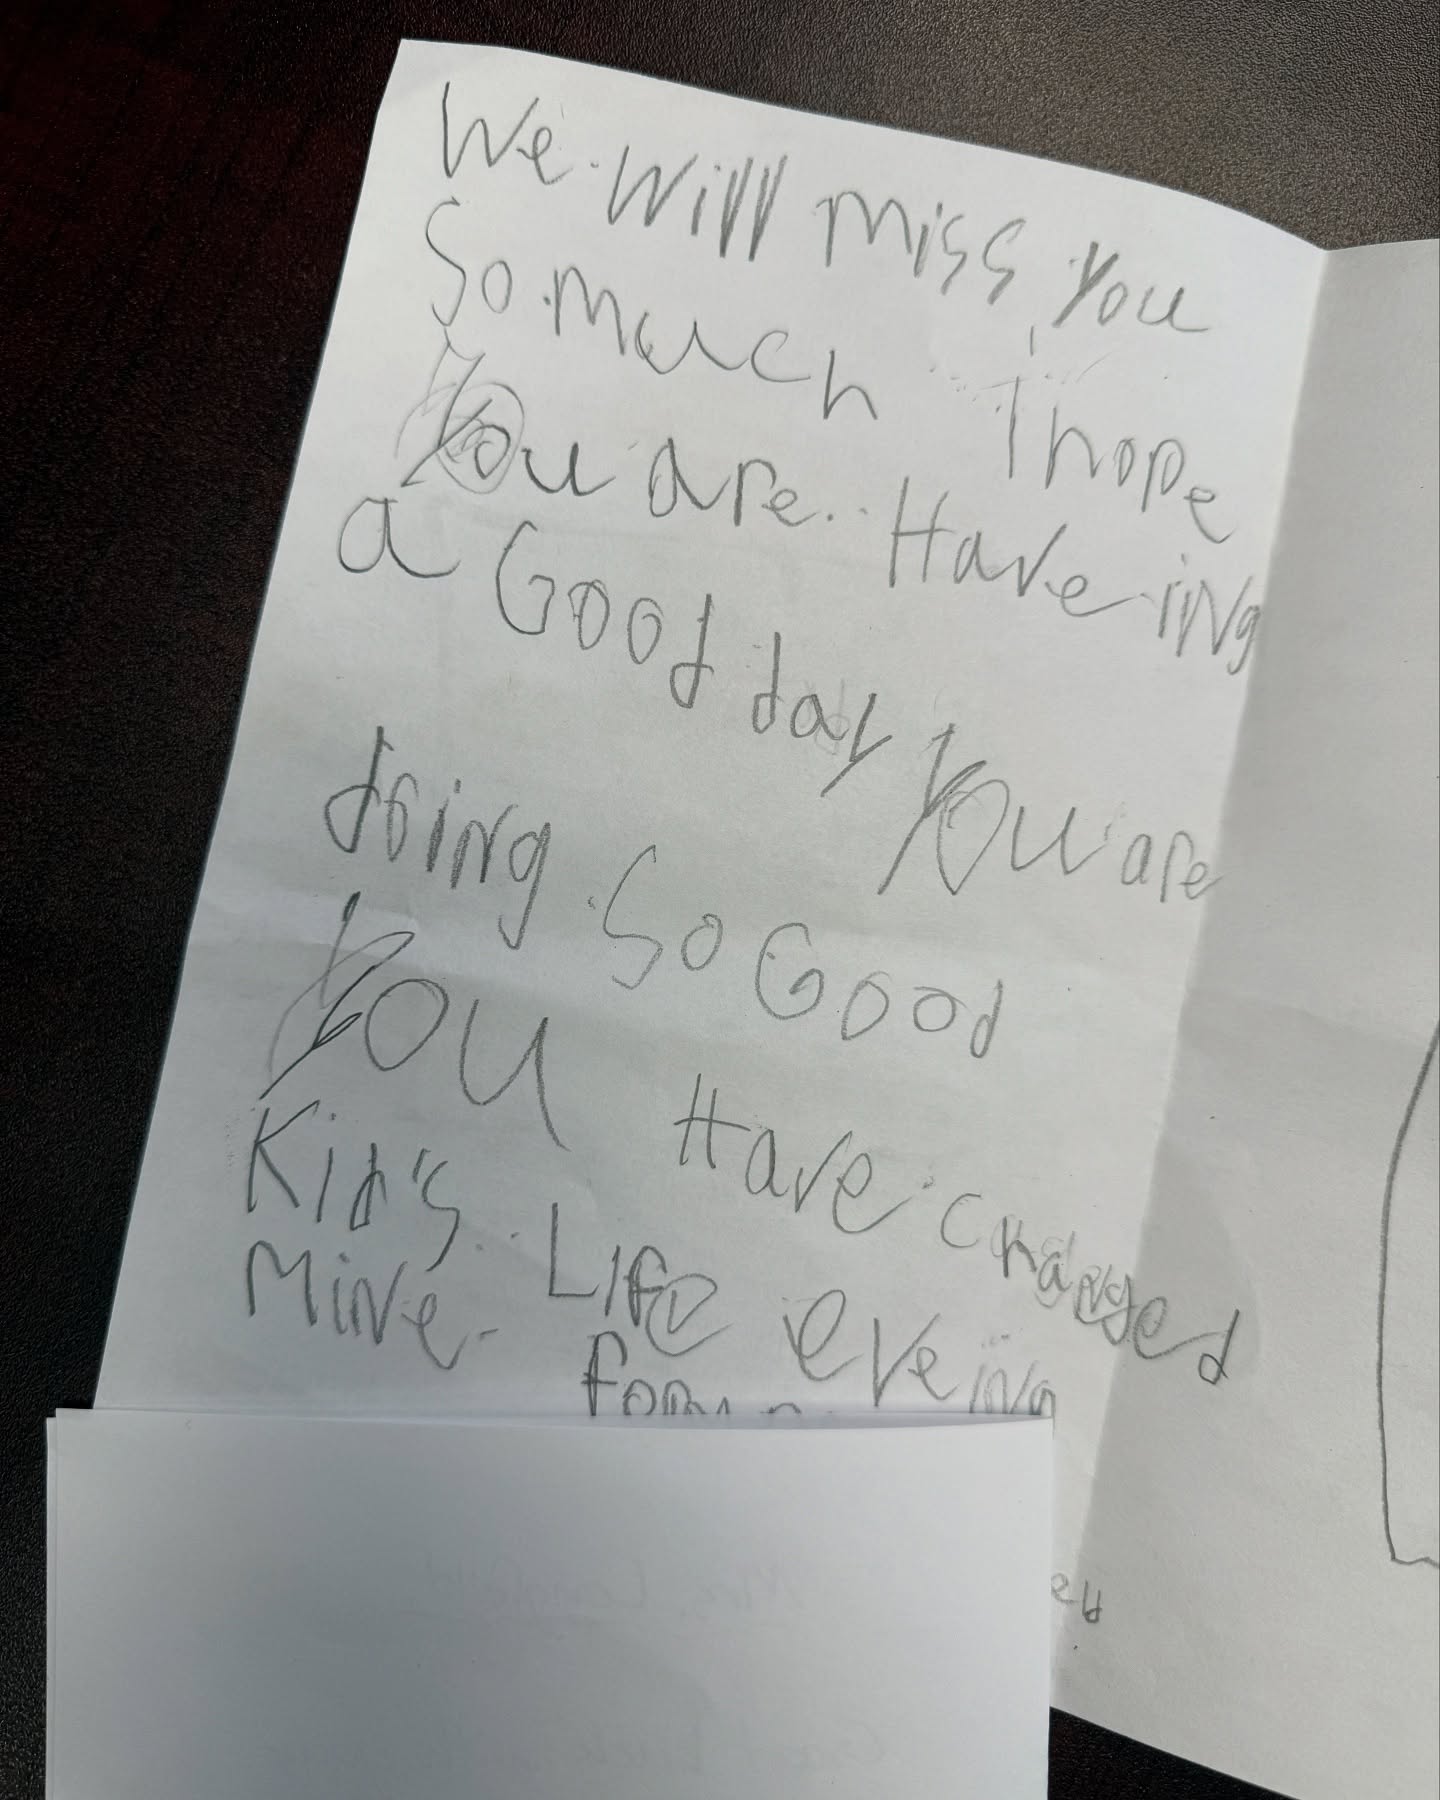 We will miss you
So much I hope
You are Haveing
a Good day You are
doing So Good
You Have changed
Kid's Life eveing
Mine